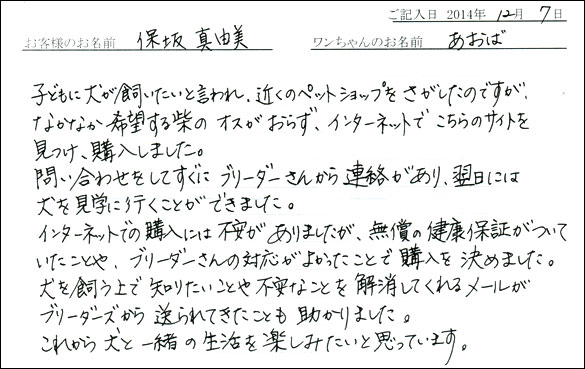 ご記入日 2014年 12月 7日
お客様のお名前 保坂 真由美 ワンちゃんのお名前 あおば
子どもに犬が飼いたいと言われ、近くのペットショップをさがしたのですが、
なかなか希望する柴のオスがおらず、インターネットでこちらのサイトを
見つけ、購入しました。
問い合わせをしてすぐにブリーダーさんから連絡があり、翌日には
犬を見学に行くことができました。
インターネットでの購入には不安がありましたが、無償の健康保証がついて
いたことや、ブリーダーさんの対応がよかったことで購入を決めました。
犬を飼う上で知りたいことや不安なことを解消してくれるメールが
ブリーダーズから送られてきたことも助かりました。
これから犬と一緒の生活を楽しみたいと思っています。